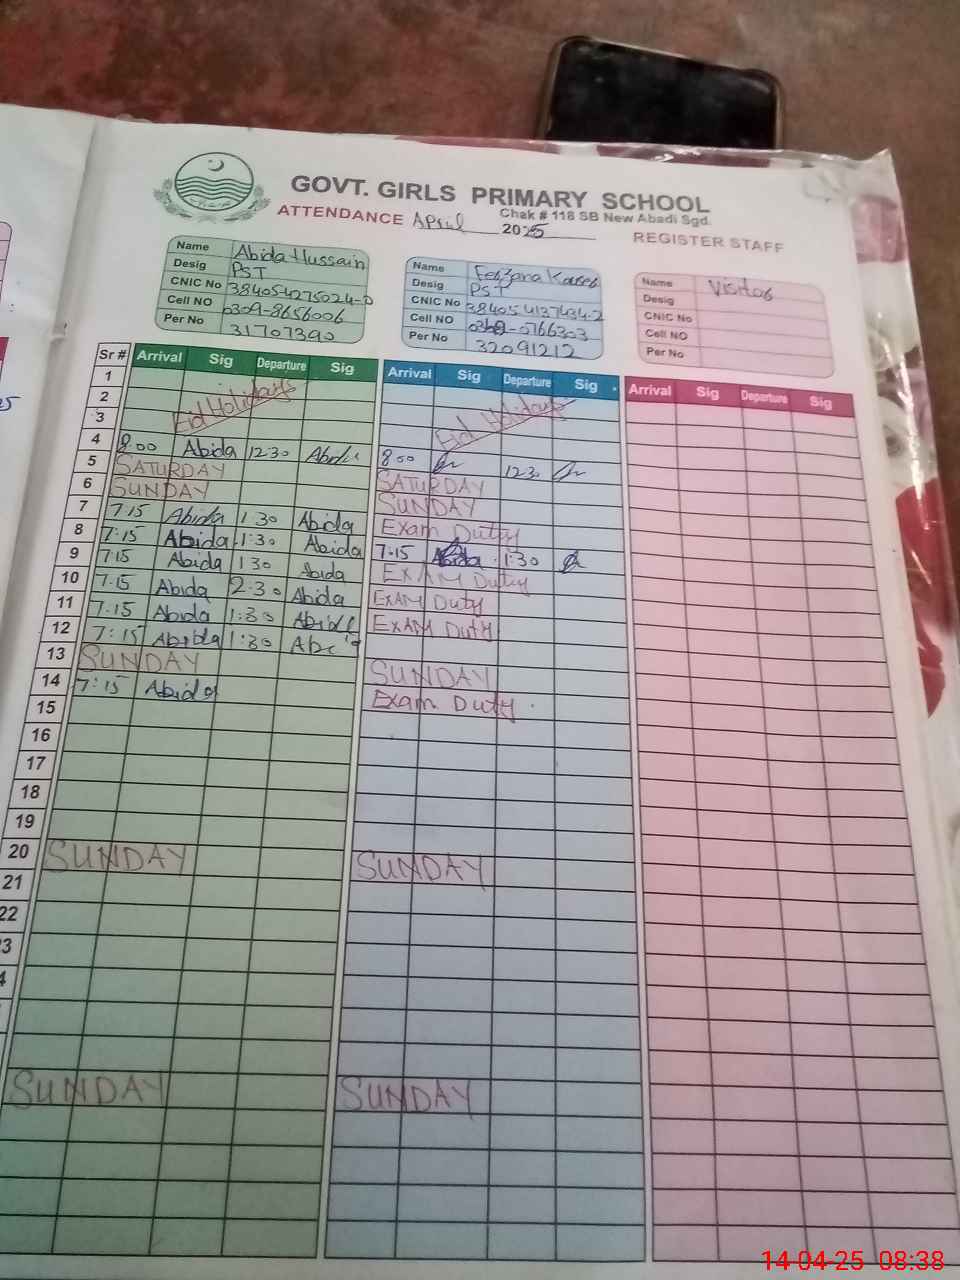 GOVT. GIRLS PRIMARY SCHOOL
Chak # 118 SB New Abadi Sgd.
ATTENDANCE April 2025 REGISTER STAFF
Name Abida Hussain
Desig PST
CNIC No
Cell NO 0309-8656006
Per No 31707390
Name
Desig PST
CNIC No
Cell NO
Per No 32091212
Name Visitor
Desig
CNIC No
Cell NO
Per No
Sr # Arrival Sig Departure Sig Arrival Sig Departure Sig Arrival Sig Departure Sig
1
2 Eid Holidays Eid Holidays
3
4 8.00 Abida 12.30 Abida 8.00 12.30
5 SATURDAY SATURDAY
6 SUNDAY SUNDAY
7 7.15 Abida 1.30 Abida Exam Duty
8 7:15 Abida 1:30 Abida 7.15 1:30
9 7.15 Abida 1.30 Abida EXAM Duty
10 7.15 Abida 2.30 Abida EXAM Duty
11 7.15 Abida 1:30 Abida EXAM Duty
12 7:15 Abida 1:30
13 SUNDAY SUNDAY
14 7:15 Abida Exam Duty
15
16
17
18
19
20 SUNDAY SUNDAY
21
22
3
4
SUNDAY SUNDAY
14-04-25 08:38